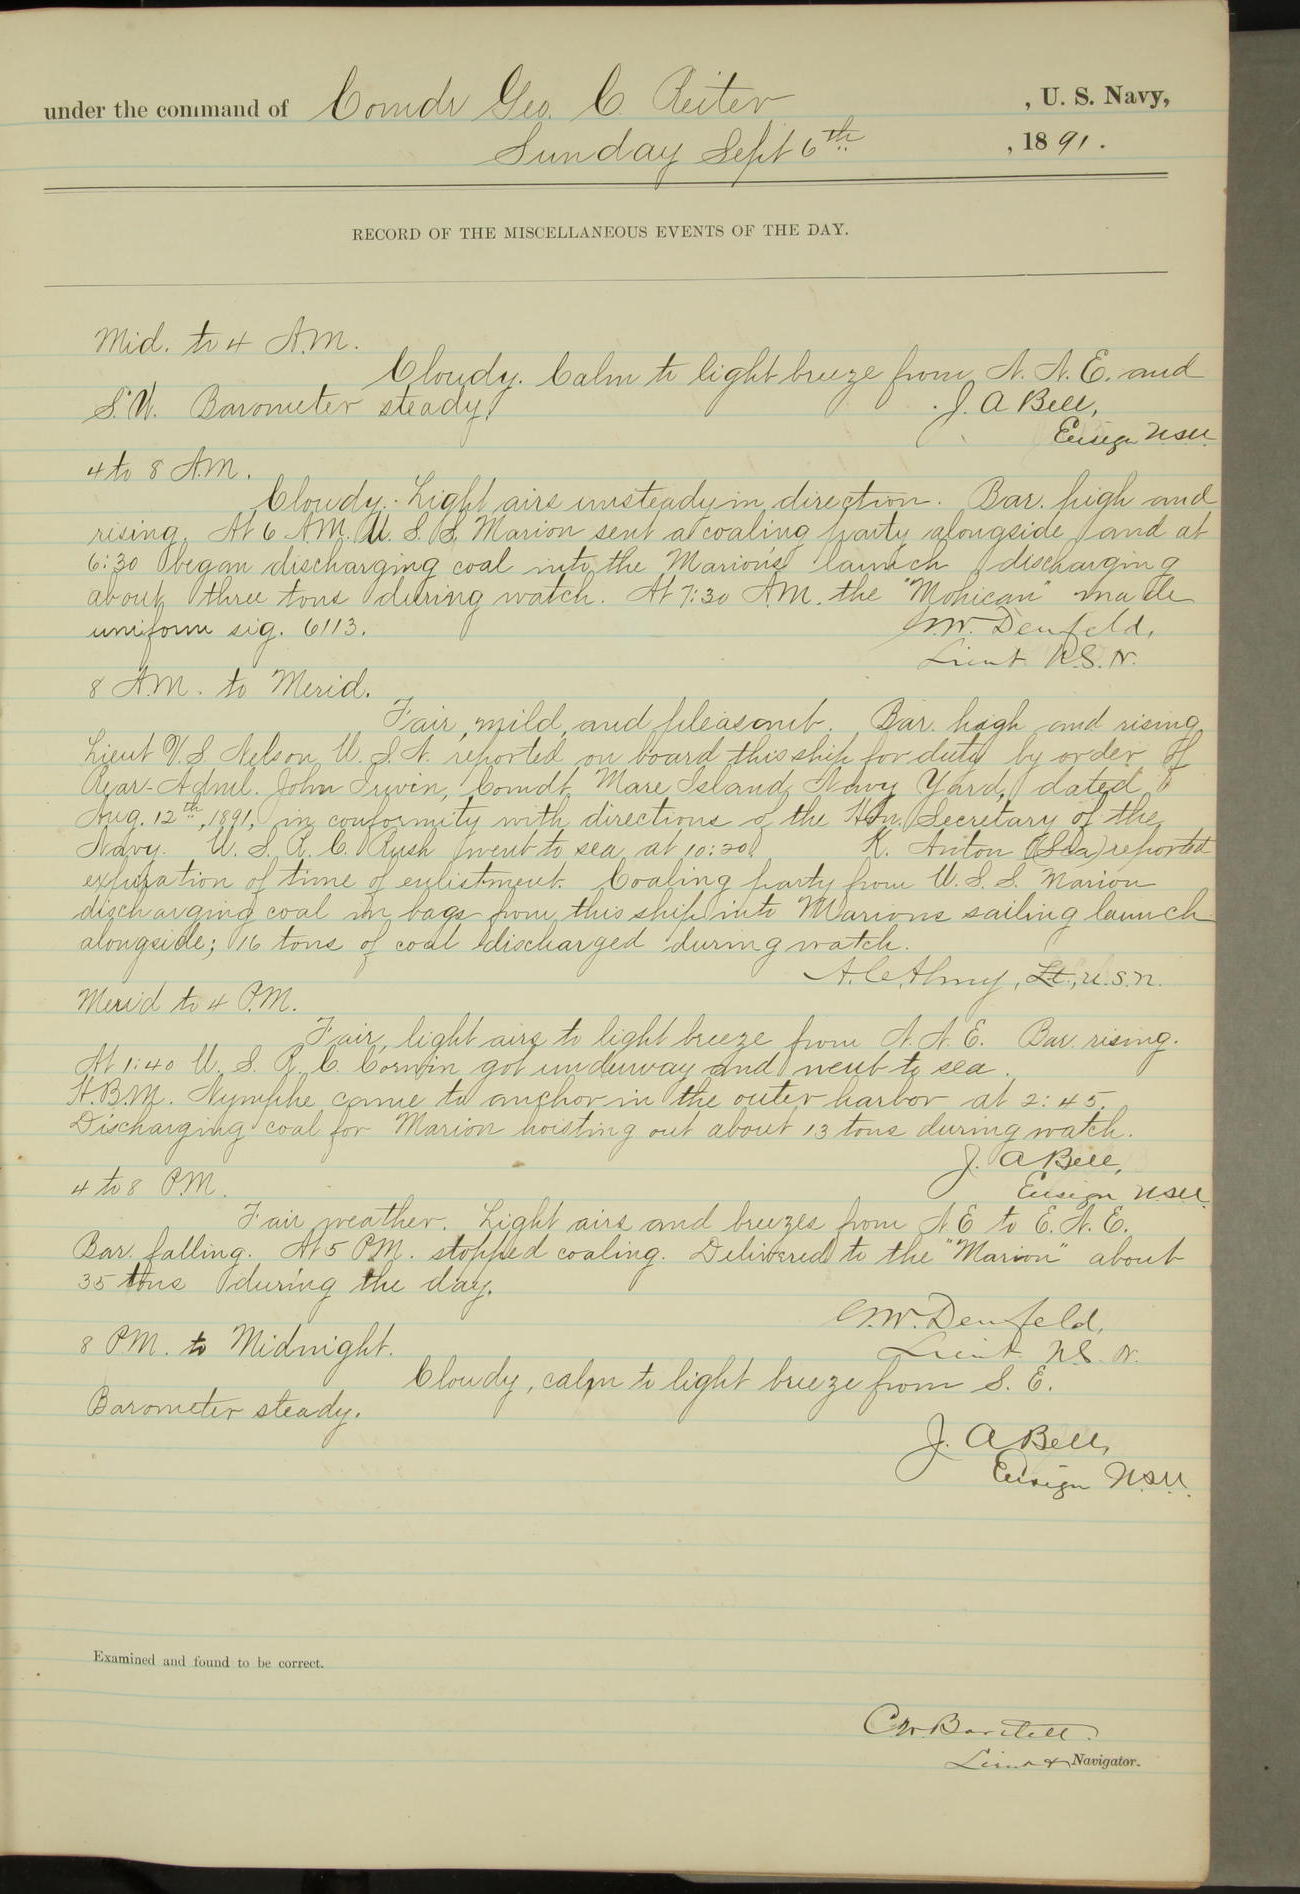 under the command of Comdr Geo. C. Reiter , U. S. Navy,
Sunday Sept 6th , 1891.
RECORD OF THE MISCELLANEOUS EVENTS OF THE DAY.
Mid. to 4 A.M.
Cloudy. Calm to light breeze from N. N. E. and
S.W. Barometer steady.
J. A Bell,
Ensign U.S.N.
4 to 8 A.M.
Cloudy. Light airs unsteady in direction. Bar. high and
rising. At 6 A.M. U. S. S. Marion sent a coaling party alongside and at
6:30 began discharging coal into the Marion's launch discharging
about three tons during watch. At 7:30 A.M. the "Mohican" made
uniform sig. 6113.
G.W. Denfeld,
Lieut U.S.N.
8 A.M. to Merid.
Fair, mild, and pleasant. Bar. high and rising
Lieut V.S. Nelson, U. S. N. reported on board this ship for duty by order of
Rear-Adml. John Irwin, Comdt. Mare Island Navy Yard, dated
Aug. 12th, 1891, in conformity with directions of the Hon. Secretary of the
Navy. U. S. R. C. Rush went to sea at 10:20. K. Anton (Sea) reported
expiration of time of enlistment. Coaling party from U. S. S. Marion
discharging coal in bags from this ship into Marions sailing launch
alongside; 16 tons of coal discharged during watch.
A. C. Almy, Lt., U.S.N.
Merid to 4 P.M.
Fair, light airs to light breeze from N. N. E. Bar. rising.
At 1:40 U. S. R. C. Corwin got underway and went to sea.
H.B.M. Nymphe came to anchor in the outer harbor at 2:45.
Discharging coal for Marion hoisting out about 13 tons during watch.
J. A Bell,
Ensign U.S.N.
4 to 8 P.M.
Fair weather. Light airs and breezes from N.E to E. N. E.
Bar. falling. At 5 P.M. stopped coaling. Delivered to the "Marion" about
35 tons during the day.
G.W. Denfeld,
Lieut U.S.N.
8 P.M. to Midnight.
Cloudy, calm to light breeze from S. E.
Barometer steady.
J. A Bell,
Ensign U.S.N.
Examined and found to be correct.
C.W. Bartlett.
Lieut & Navigator.